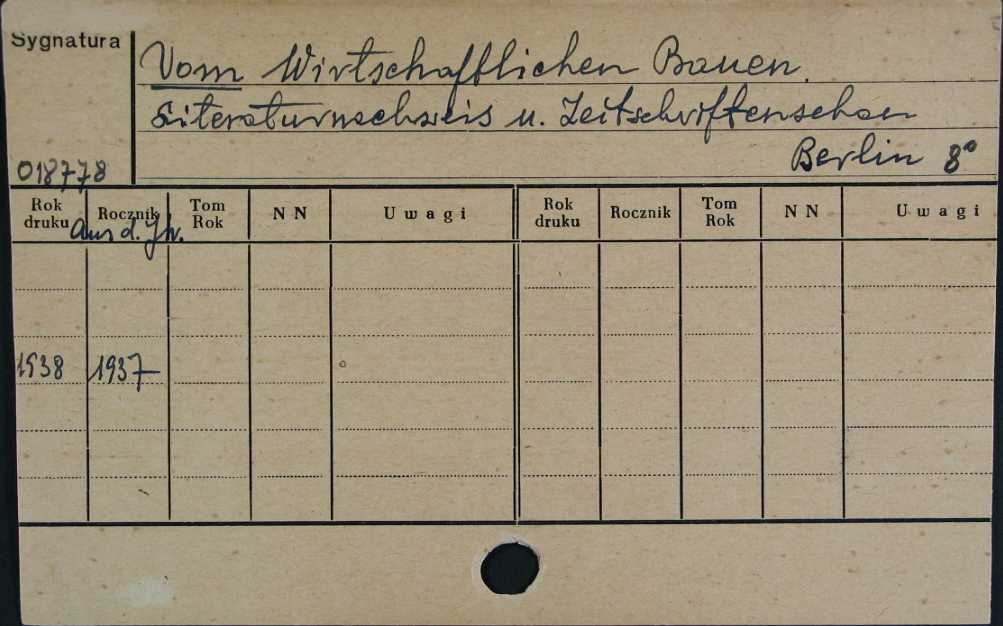 Sygnatura
Vom Wirtschaftlichen Bauen.
Literaturnachweis u. Zeitschriftenschau
Berlin 8°
018778
Rok druku Rocznik Tom Rok N N Uwagi Rok druku Rocznik Tom Rok N N Uwagi
Aus d. Jh.
1938 1937